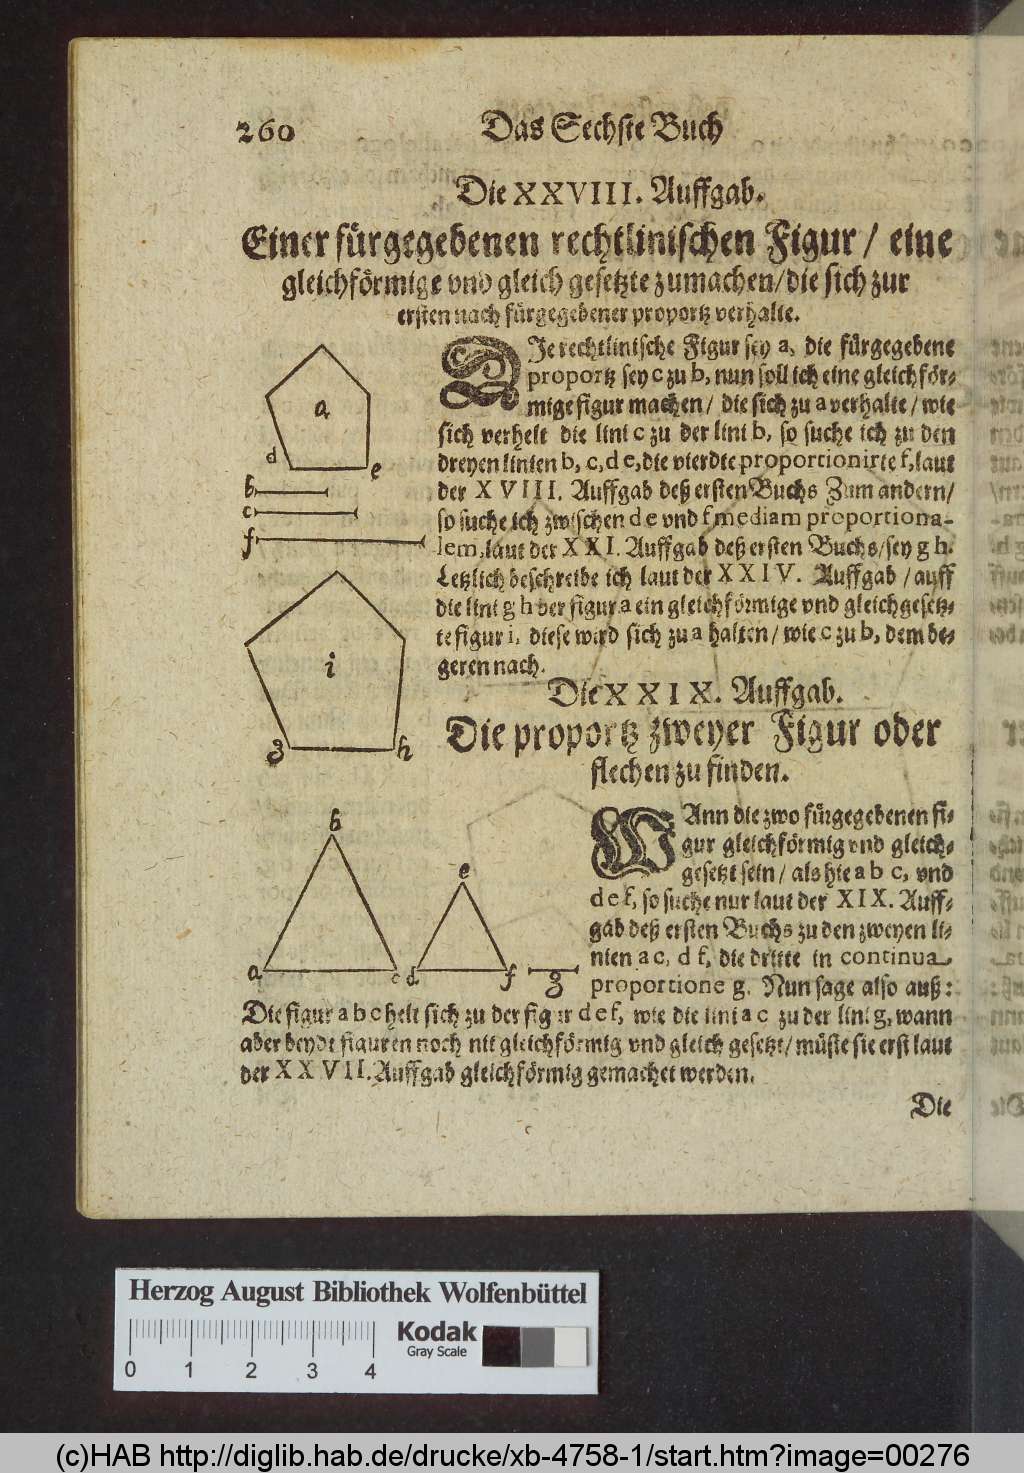 260 Das Sechste Buch
Die XXVIII. Auffgab.
Einer fürgegebenen rechtlinischen Figur / eine
gleichförmige vnd gleich gesetzte zumachen/die sich zur
ersten nach fürgegebener proportz verhalte.
DJe rechtlinische Figur sey a, die fürgegebene
proportz sey c zu b, nun soll ich eine gleichför-
mige figur machen / die sich zu a verhalte / wie
sich verhelt die lini c zu der lini b, so suche ich zu den
dreyen linien b, c, d e, die vierdte proportionirte f, laut
der XVIII. Auffgab deß ersten Buchs Zum andern/
so suche ich zwischen d e vnd f mediam proportiona-
lem, laut der XXI. Auffgab deß ersten Buchs/sey g h.
Letzlich beschreibe ich laut der XXIV. Auffgab / auff
die lini g h der figur a ein gleichförmige vnd gleichgesetz-
te figur i, diese wird sich zu a halten / wie c zu b, dem be-
geren nach.
a
d
e
b
c
f
i
g
h
Die XXIX. Auffgab.
Die proportz zweyer Figur oder
flechen zu finden.
WAnn die zwo fürgegebenen fi-
gur gleichförmig vnd gleich-
gesetzt sein / als hie a b c, vnd
d e f, so suche nur laut der XIX. Auff-
gab deß ersten Buchs zu den zweyen li-
nien a c, d f, die dritte in continua
proportione g. Nun sage also auß:
b
e
a
c
d
f
g
Die figur a b c helt sich zu der figur d e f, wie die lini a c zu der lini g, wann
aber beyde figuren noch nit gleichförmig vnd gleich gesetzt/ müste sie erst laut
der XXVII. Auffgab gleichförmig gemachet werden.
Die
Herzog August Bibliothek Wolfenbüttel
0 1 2 3 4
Kodak
Gray Scale
(c)HAB http://diglib.hab.de/drucke/xb-4758-1/start.htm?image=00276